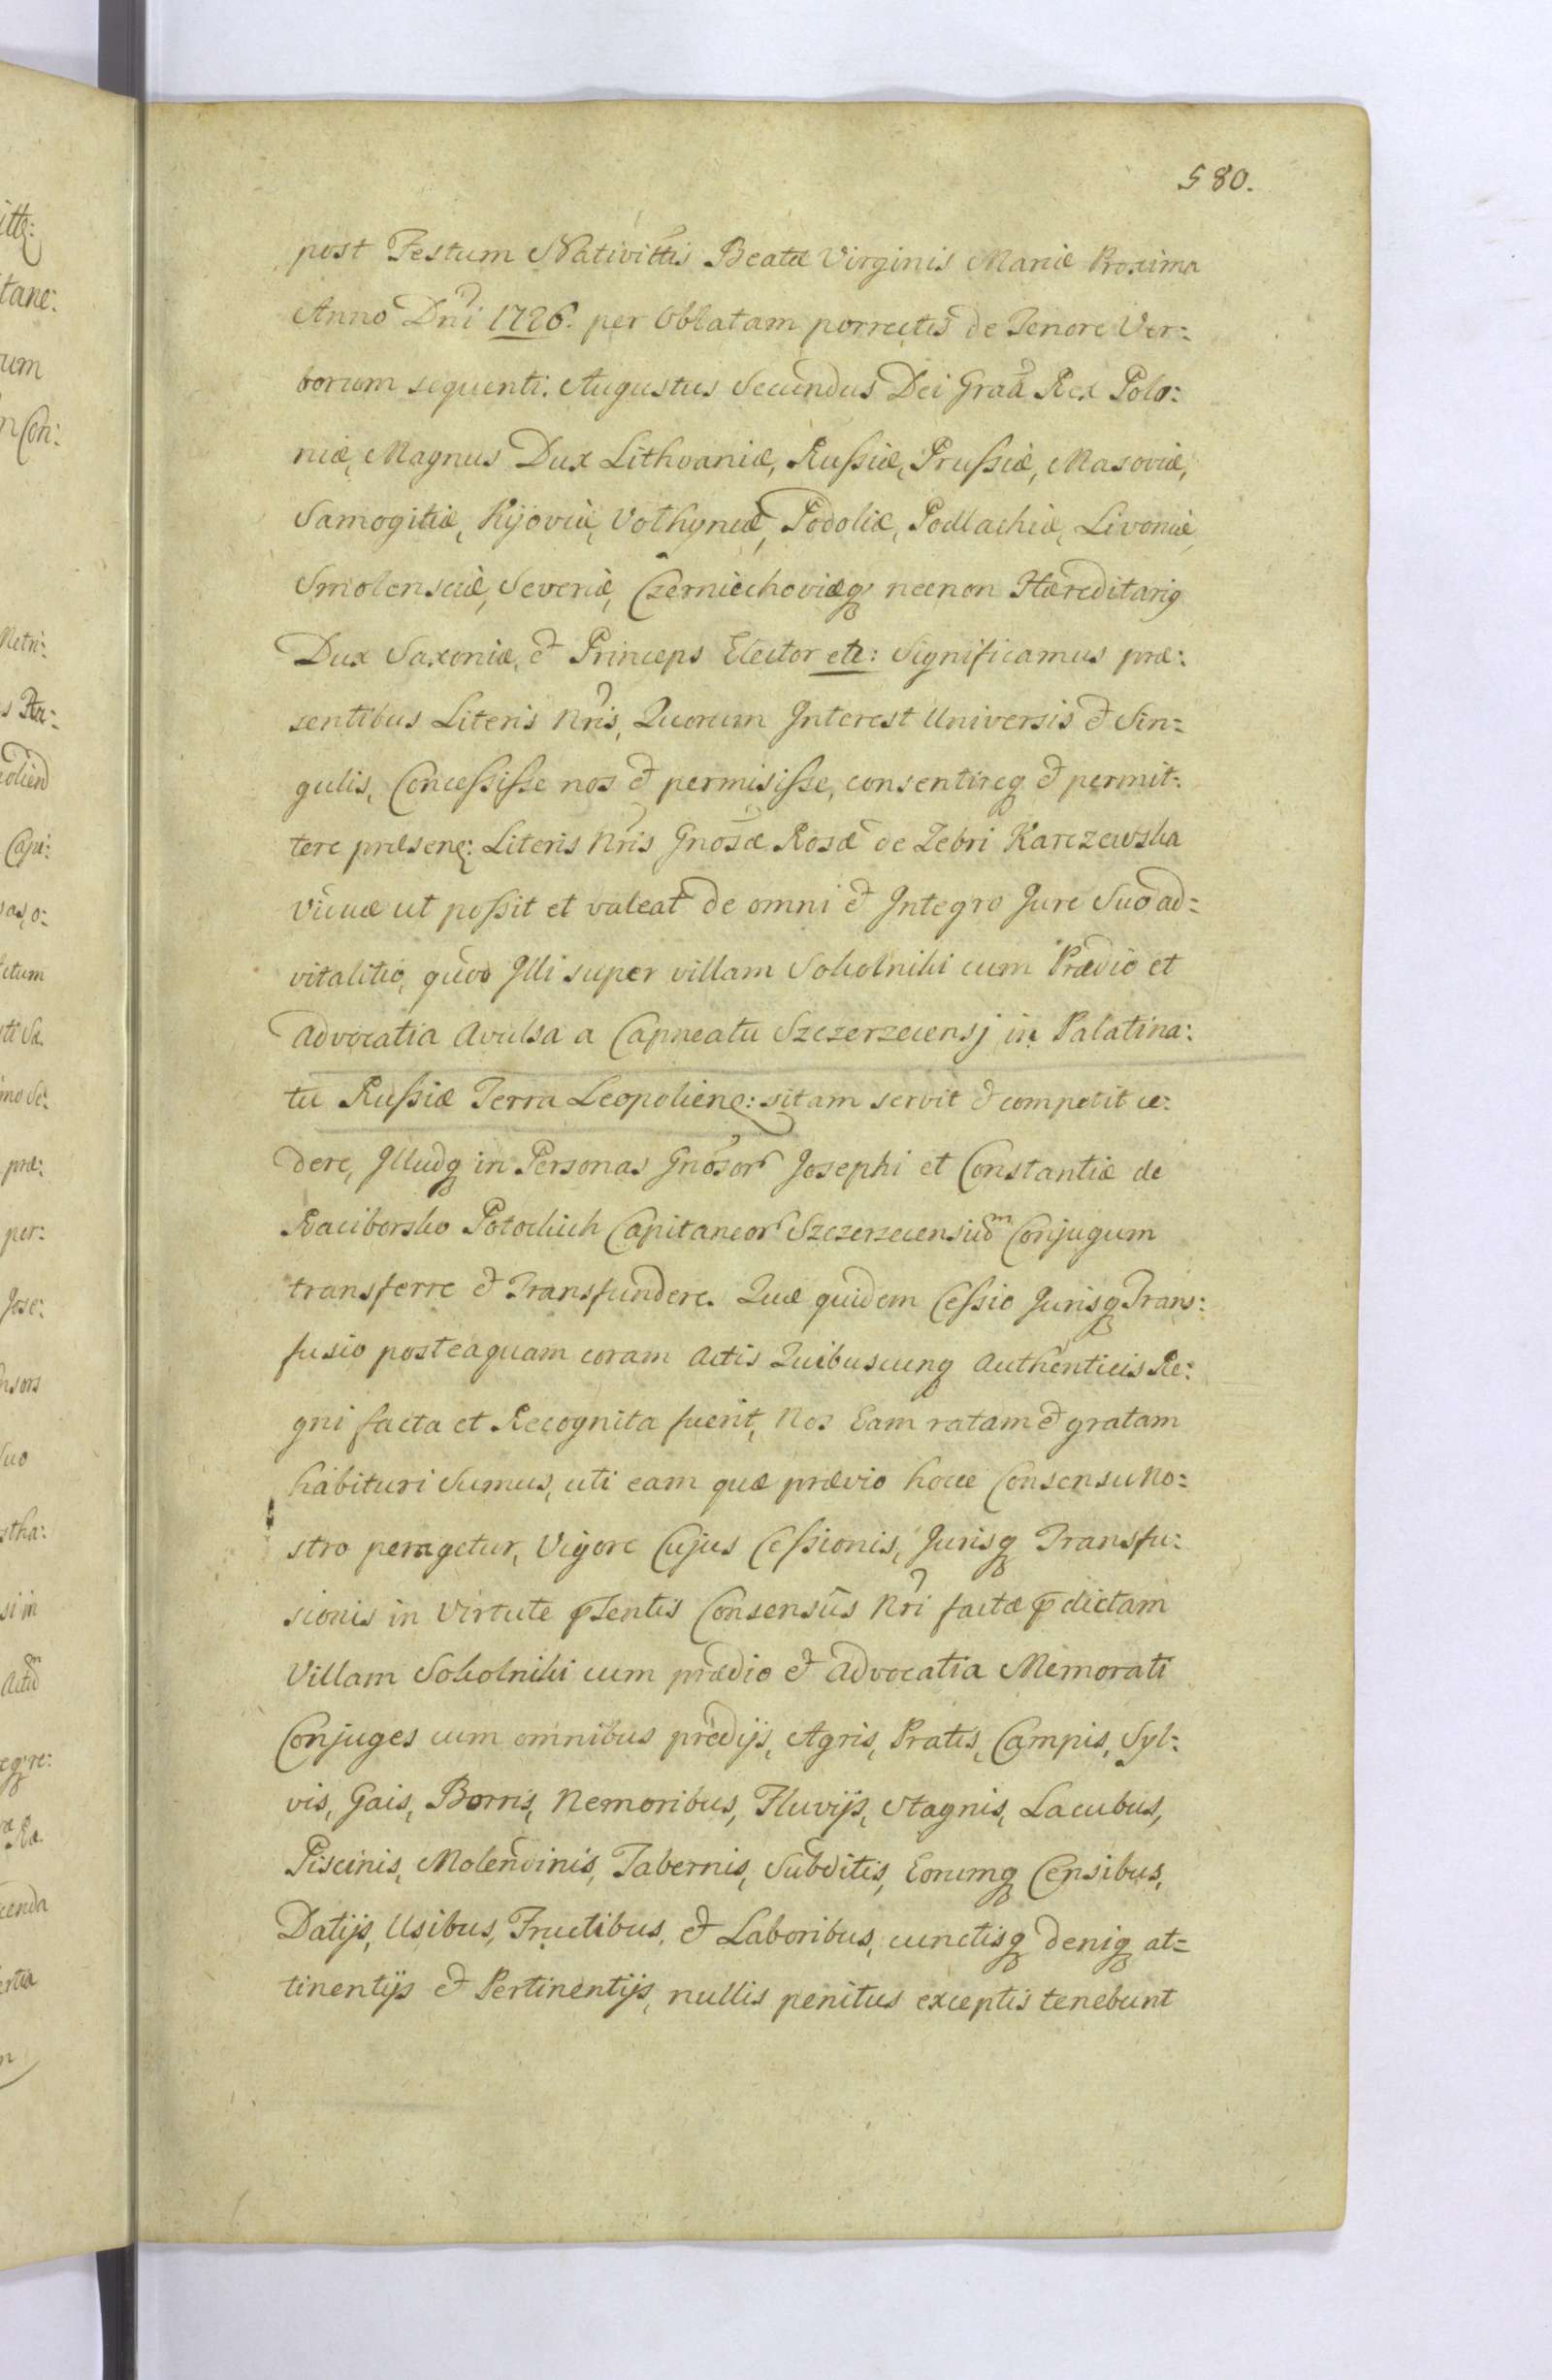 580.
post Festum Nativittis Beatæ Virginis Mariæ Proxima
Anno Dni 1726. per Oblatam porrectis de Tenore Ver:
borum sequenti. Augustus Secundus Dei Graã Rex Polo:
niæ, Magnus Dux Lithvaniæ, Rußiæ, Prußiæ, Masoviæ,
Samogitiæ, Kijoviæ, Volhyniæ, Podoliæ, Podlachiæ, Livoniæ,
Smolensciæ, Severiæ, Czerniechoviæq necnon Hæreditarig
Dux Saxoniæ, et Princeps Elector etc: Significamus præ:
sentibus Literis Nris, Quorum Interest Universis et Sin=
gulis, Conceßiße nos et permisiße, consentireq et permit:
tere præsenq: Literis Nris Gnosæ Rosæ de Zebri Karczewska
viduæ ut poßit et valeat de omni et Integro Jure Suo ad=
vitalitio, quod Illi super villam Sokolniki cum Prædio et
Advocatia Avulsa a Capneatu Szczerzecensj in Palatina:
tu Rußiæ Terra Leopolienq: sitam servit et competit ce:
dere, Illudq in Personas Gnosor Josephi et Constantiæ de
Raciborsko Potockich Capitaneor Szczerzecensium Conjugum
transferre et Transfundere. Quæ quidem Ceßio Jurisq Trans:
fusio posteaquam coram Actis Quibuscunq Authenticis Re:
gni facta et Recognita fuerit, Nos Eam ratam et gratam
habituri Sumus, uti eam quæ prævio hocce Consensu No:
stro peragetur, Vigore Cujus Ceßionis, Jurisq Transfu:
sionis in Virtute pſentis Consensûs Nri factæ pdictam
Villam Sokolniki cum prædio et Advocatia Memorati
Conjuges cum omnibus prædijs, Agris, Pratis, Campis, Syl:
vis, Gais, Borris, Nemoribus, Fluvijs, Stagnis, Lacubus,
Piscinis, Molendinis, Tabernis, Subditis, Eorumq Censibus,
Datijs, Usibus, Fructibus, et Laboribus, cunctisq deniq at=
tinentijs et Pertinentijs, nullis penitus exceptis tenebunt